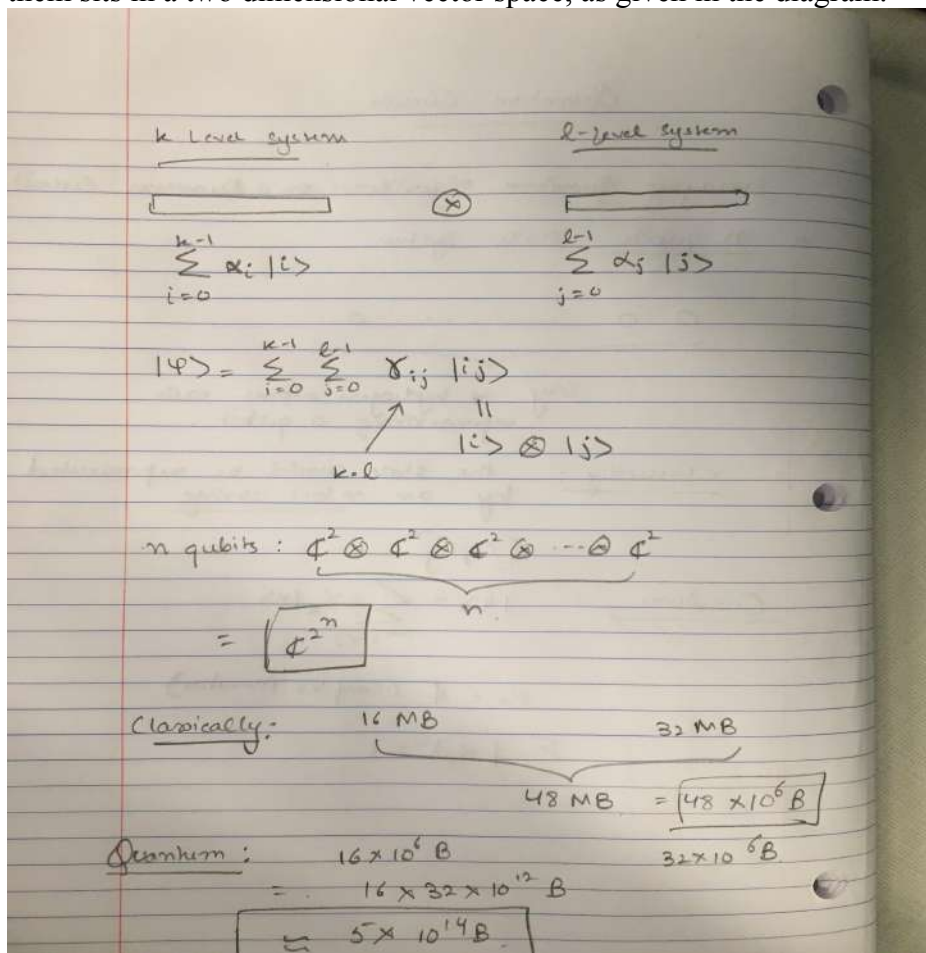 them sits in a two dimensional vector space, as given in the diagram.
k Level system l-level system
⊗
k-1 ∑ i=0 αᵢ |i> l-1 ∑ j=0 αⱼ |j>
|φ> = k-1 ∑ i=0 l-1 ∑ j=0 γᵢⱼ |ij>
||
k.l |i> ⊗ |j>
n qubits : ₵² ⊗ ₵² ⊗ ₵² ⊗ --⊗ ₵²
n
= ₵^2^n
Classically: 16 MB 32 MB
48 MB = 48 x10⁶ B
Quantum : 16 x 10⁶ B 32x10⁶B
= 16 x 32 x 10¹² B
≈ 5x 10¹⁴B